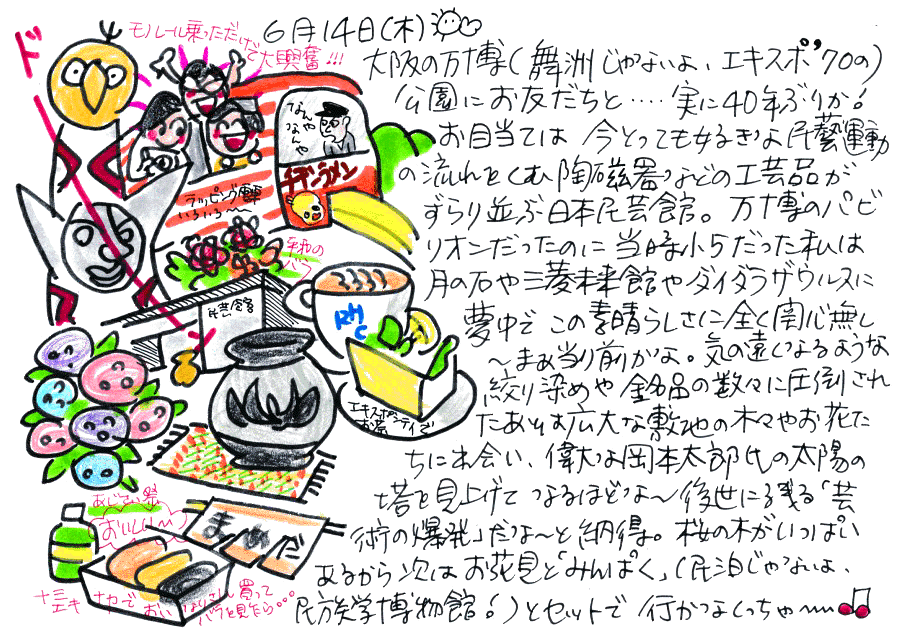 6月14日(木)
モルール乗っただけで大興奮!!!
ド
大阪の万博(舞洲じゃないよ、エキスポ'70の)
公園にお友だちと……実に40年ぶりか!
お目当ては今とっても
民藝運動
の流れをくむ陶磁器などの工芸品が
ずらり並ぶ日本民芸館。万博のパビ
リオンだったのに当時小5だった私は
月の石や三菱未来館やダイダラザウルスに
夢中でこの素晴らしさに全く関心無し
〜まぁ当り前かな。気の遠くなるような
絞り染めや銘品の数々に圧倒され
たあとは広大な敷地の木々やお花た
ちに出会い、偉大な岡本太郎氏の太陽の
塔を見上げてなるほどな〜後世に残る「芸
術の爆発」だな〜と納得。桜の木がいっぱい
あるから次はお花見と「みんぱく」(民泊じゃないよ、
民族学博物館!)とセットで行かなくっちゃ〜
なんや
なんや
チキンラーメン
ラッピング電車
いろいろ〜
平和の
バラ
民芸館
エキスポシティで
お茶
あじさい祭
おいしい〜
まめだ
十三
エキ
ナカで
おいなりさん買って
バラを見たら…